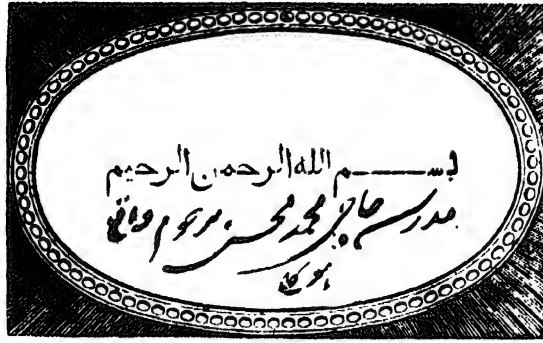 بسم الله الرحمن الرحيم
مدرسہ حاجی محمد محسن مرحوم واقع
ہوگلی